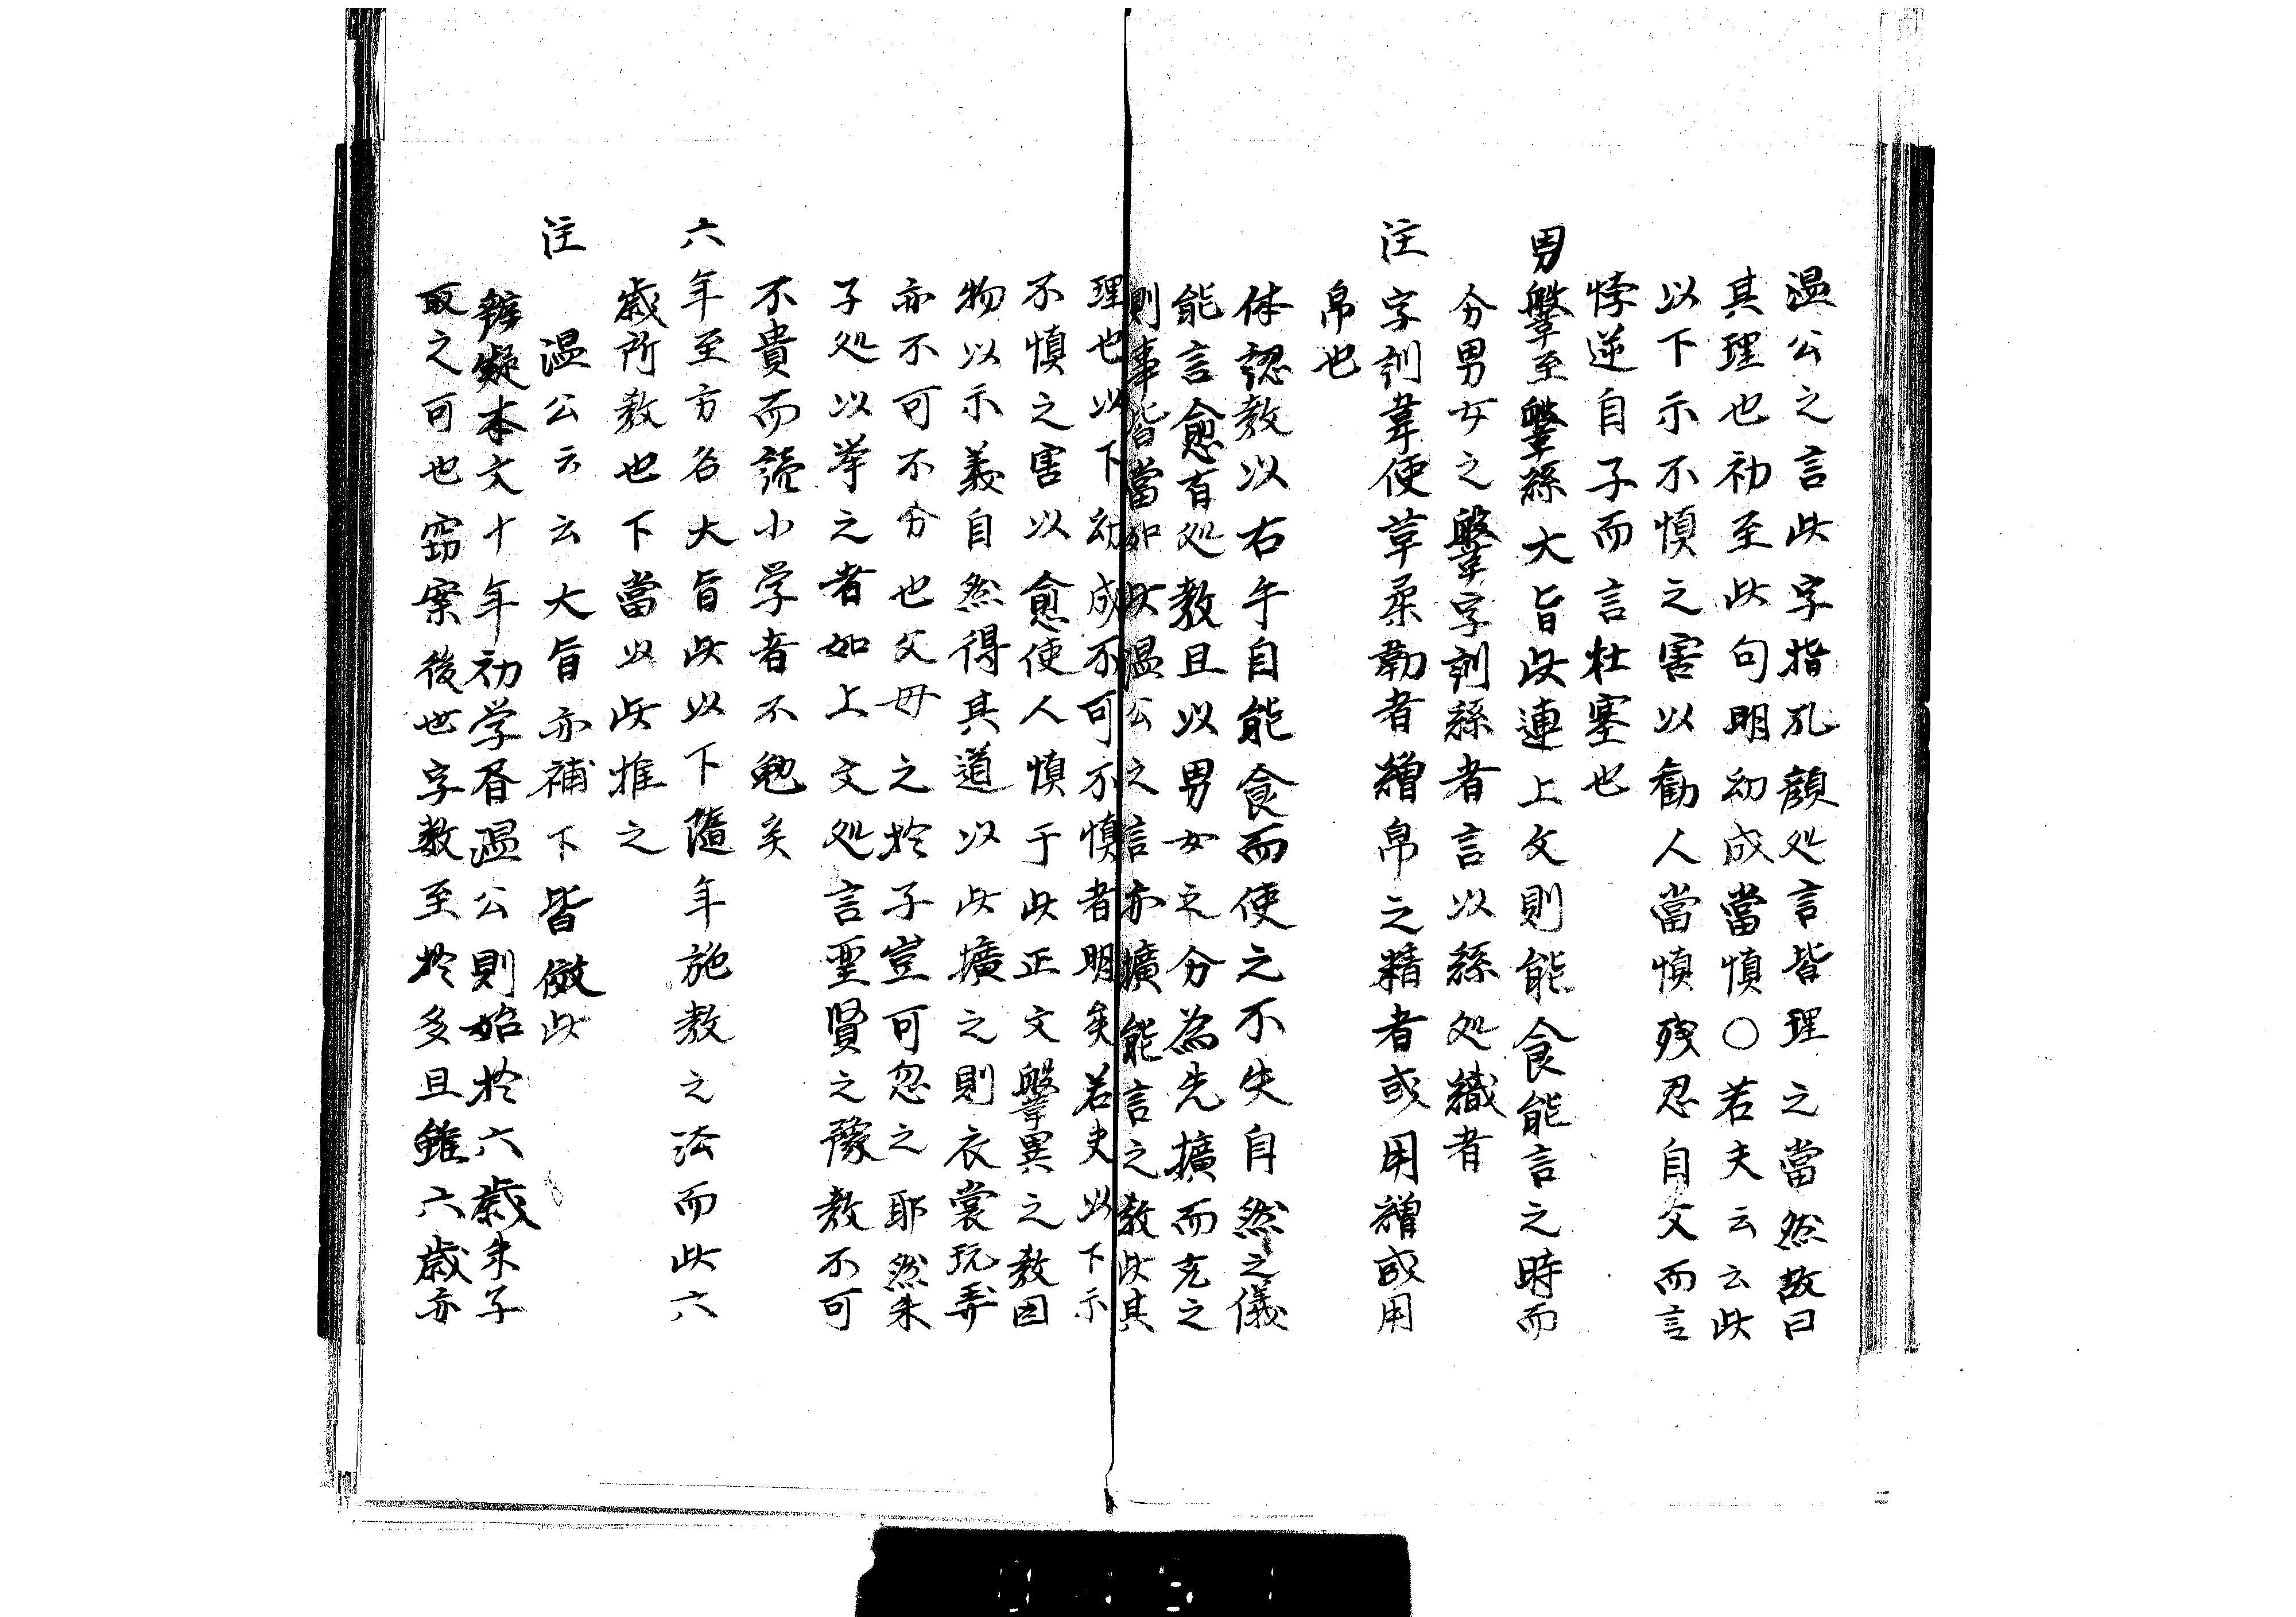 温公之言此字指孔顔処言皆理之當然故曰
其理也初至此句明初成當慎〇若夫云云此
以下示不慎之害以勸人當慎殘忍自父而言
悖逆自子而言杜塞也
男鞶革至鞶絲大旨此連上文則能食能言之時而
分男女之鞶字訓絲者言以絲処織者
注字訓韋使草柔韌者繒帛之精者或用繒或用
帛也
体認教以右手自能食而使之不失自然之儀
能言愈有処教且以男女之分為先擴而充之
則事皆當如此温公之言亦擴能言之教此其
理也以下幼成不可不慎者明矣若夫以下示
不慎之害以愈使人慎于此正文鞶異之教因
物以示義自然得其道以此擴之則衣裳玩弄
亦不可不分也父母之於子豈可忽之耶然朱
子処以挙之者如上文処言聖賢之豫教不可
不貴而読小学者不勉矣
六年至方名大旨此以下隨年施教之法而此六
歳所教也下當以此推之
注　温公云云大旨亦補下皆倣此
辨疑本文十年初学昏温公則始於六歳朱子
取之可也窃案後世字数至於多且雖六歳亦